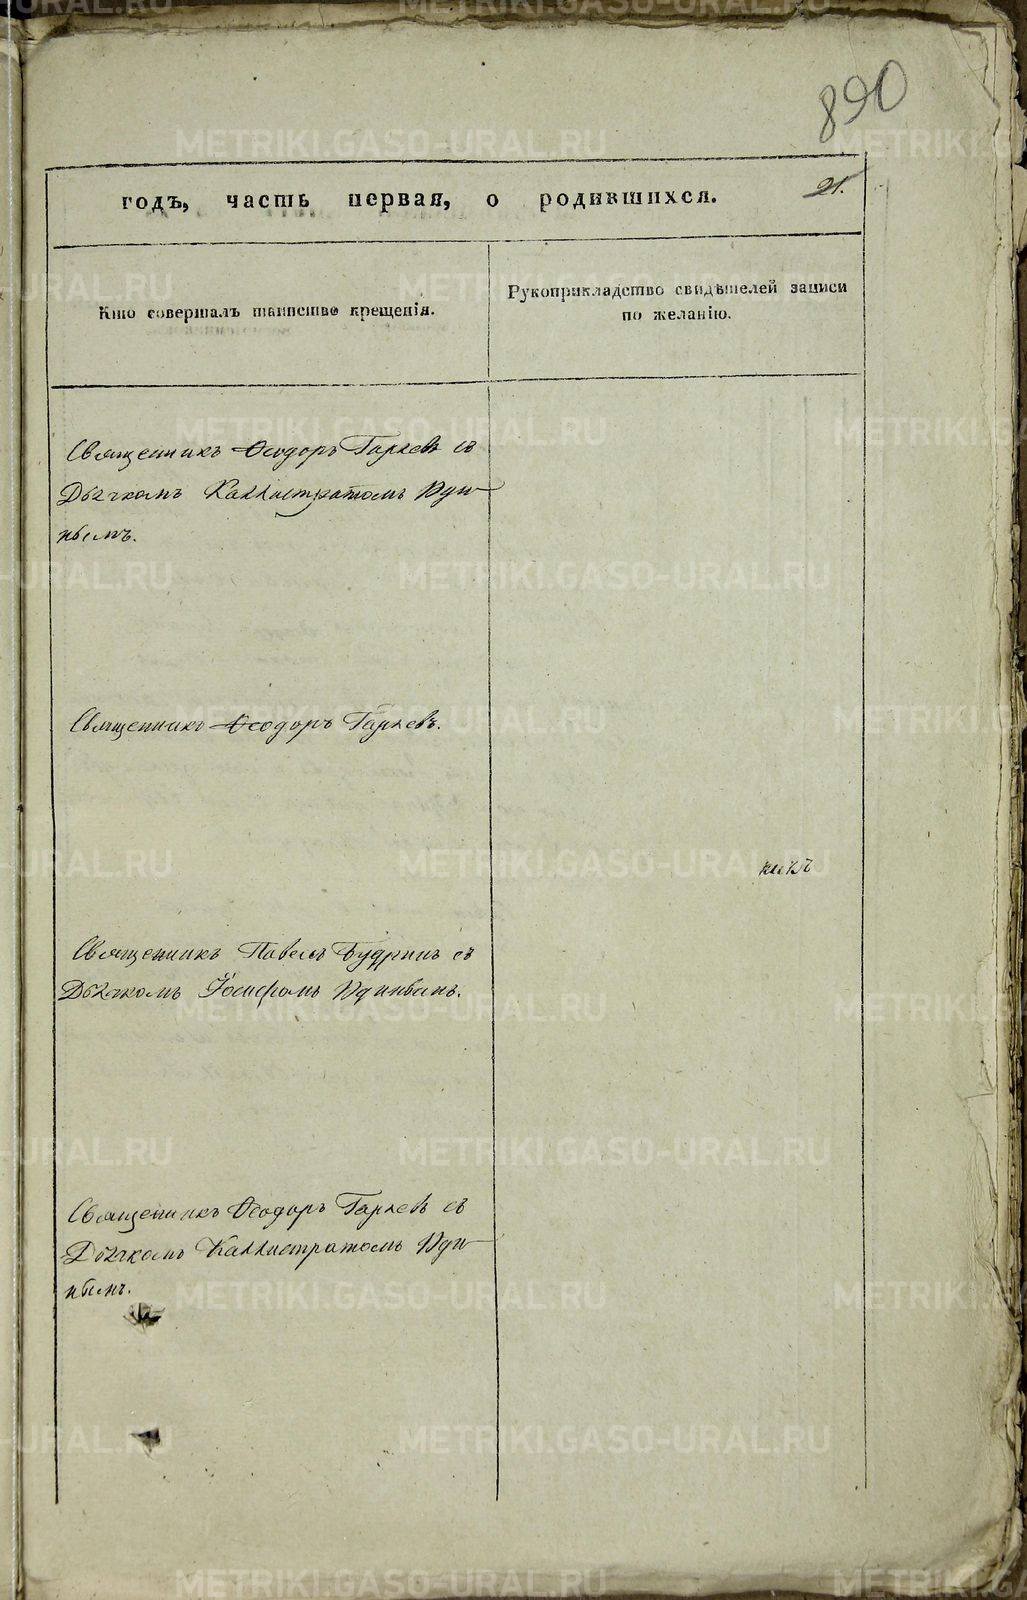 890
21.
годъ, часть первая, о родившихся.
Кто совершалъ таинство крещенія.
Рукоприкладство свидѣтелей записи
по желанію.
Священникъ Ѳеодоръ Гаряевъ съ
Дьячкомъ Каллистратомъ Удин-
нымъ.
Священникъ Ѳеодоръ Гаряевъ.
Священникъ Павелъ Будринъ съ
Дьячкомъ Іосифомъ
Священникъ Ѳеодоръ Гаряевъ съ
Дьячкомъ Каллистратомъ
нымъ.
METRIKI.GASO-URAL.RU